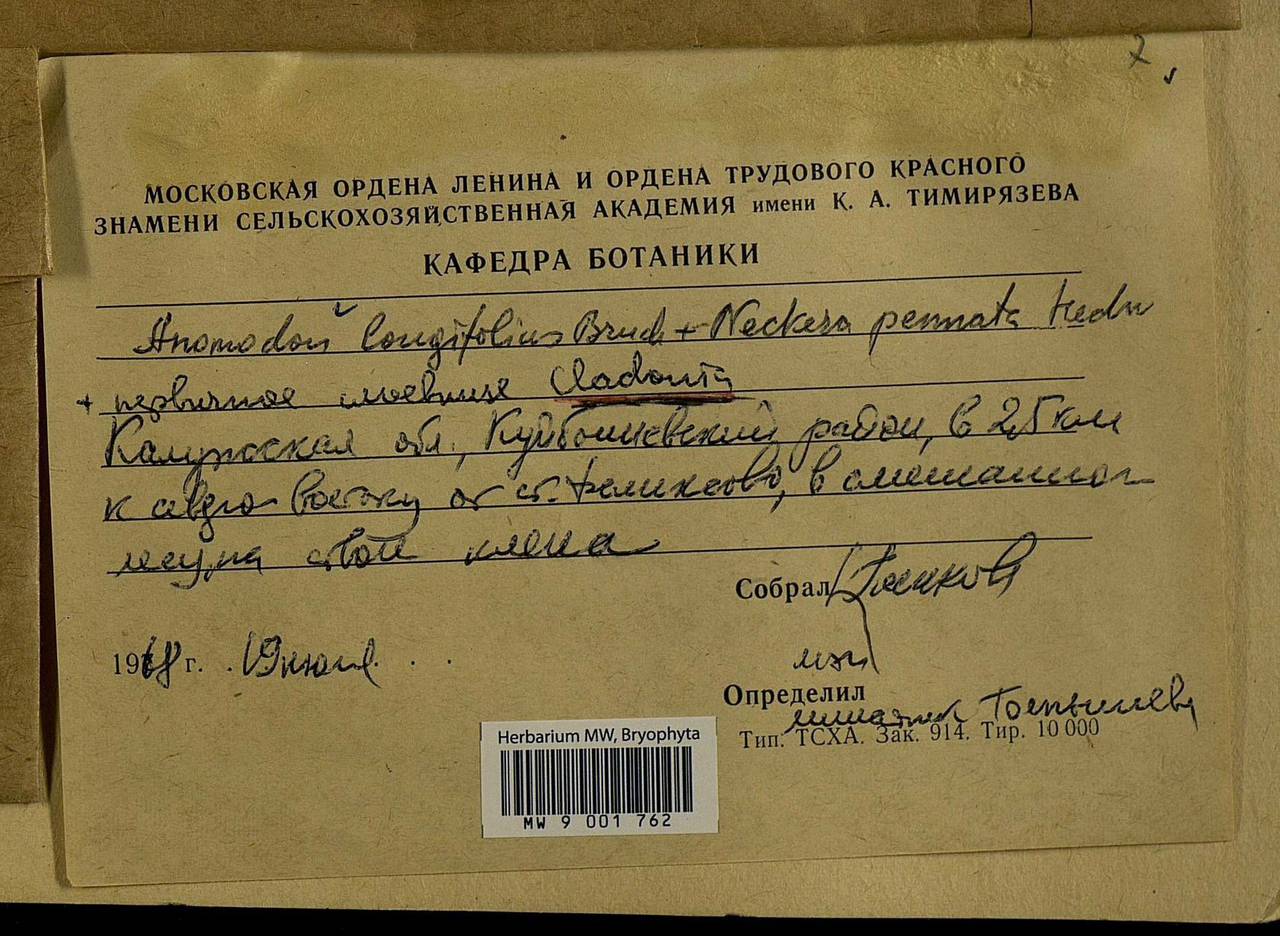 7
МОСКОВСКАЯ ОРДЕНА ЛЕНИНА И ОРДЕНА ТРУДОВОГО КРАСНОГО
ЗНАМЕНИ СЕЛЬСКОХОЗЯЙСТВЕННАЯ АКАДЕМИЯ имени К. А. ТИМИРЯЗЕВА
КАФЕДРА БОТАНИКИ
Anomodon longifolius Bruch + Neckera pennata Hedw
+ первичное слоевище Cladonia
Калужская обл., Куйбышевский район, в 2,5 км
к северо-востоку от ст. в смешанном
лесу, на стволе клена
Собрал
1968 г. 19 июля
мхи
Определил
лишайник
Тип. ТСХА. Зак. 914. Тир. 10 000
Herbarium MW, Bryophyta
MW 9 001 762